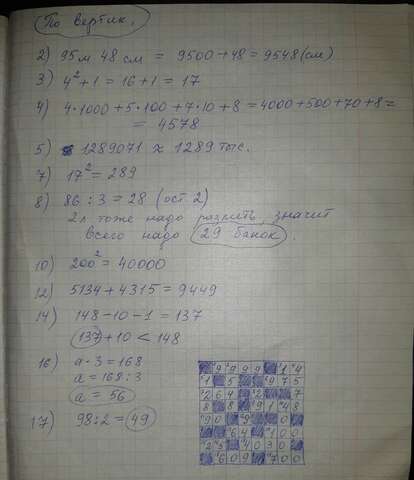 По вертик.
2) 95 м 48 см = 9500 + 48 = 9548 (см)
3) 4² + 1 = 16 + 1 = 17
4) 4·1000 + 5·100 + 7·10 + 8 = 4000 + 500 + 70 + 8 =
= 4578
5) 1289071 ≈ 1289 тыс.
7) 17² = 289
8) 86 : 3 = 28 (ост. 2)
2л тоже надо разлить, значит
всего надо 29 банок.
10) 200² = 40000
12) 5134 + 4315 = 9449
14) 148 - 10 - 1 = 137
137 + 10 < 148
16) a · 3 = 168
a = 168 : 3
a = 56
17) 98 : 2 = 49